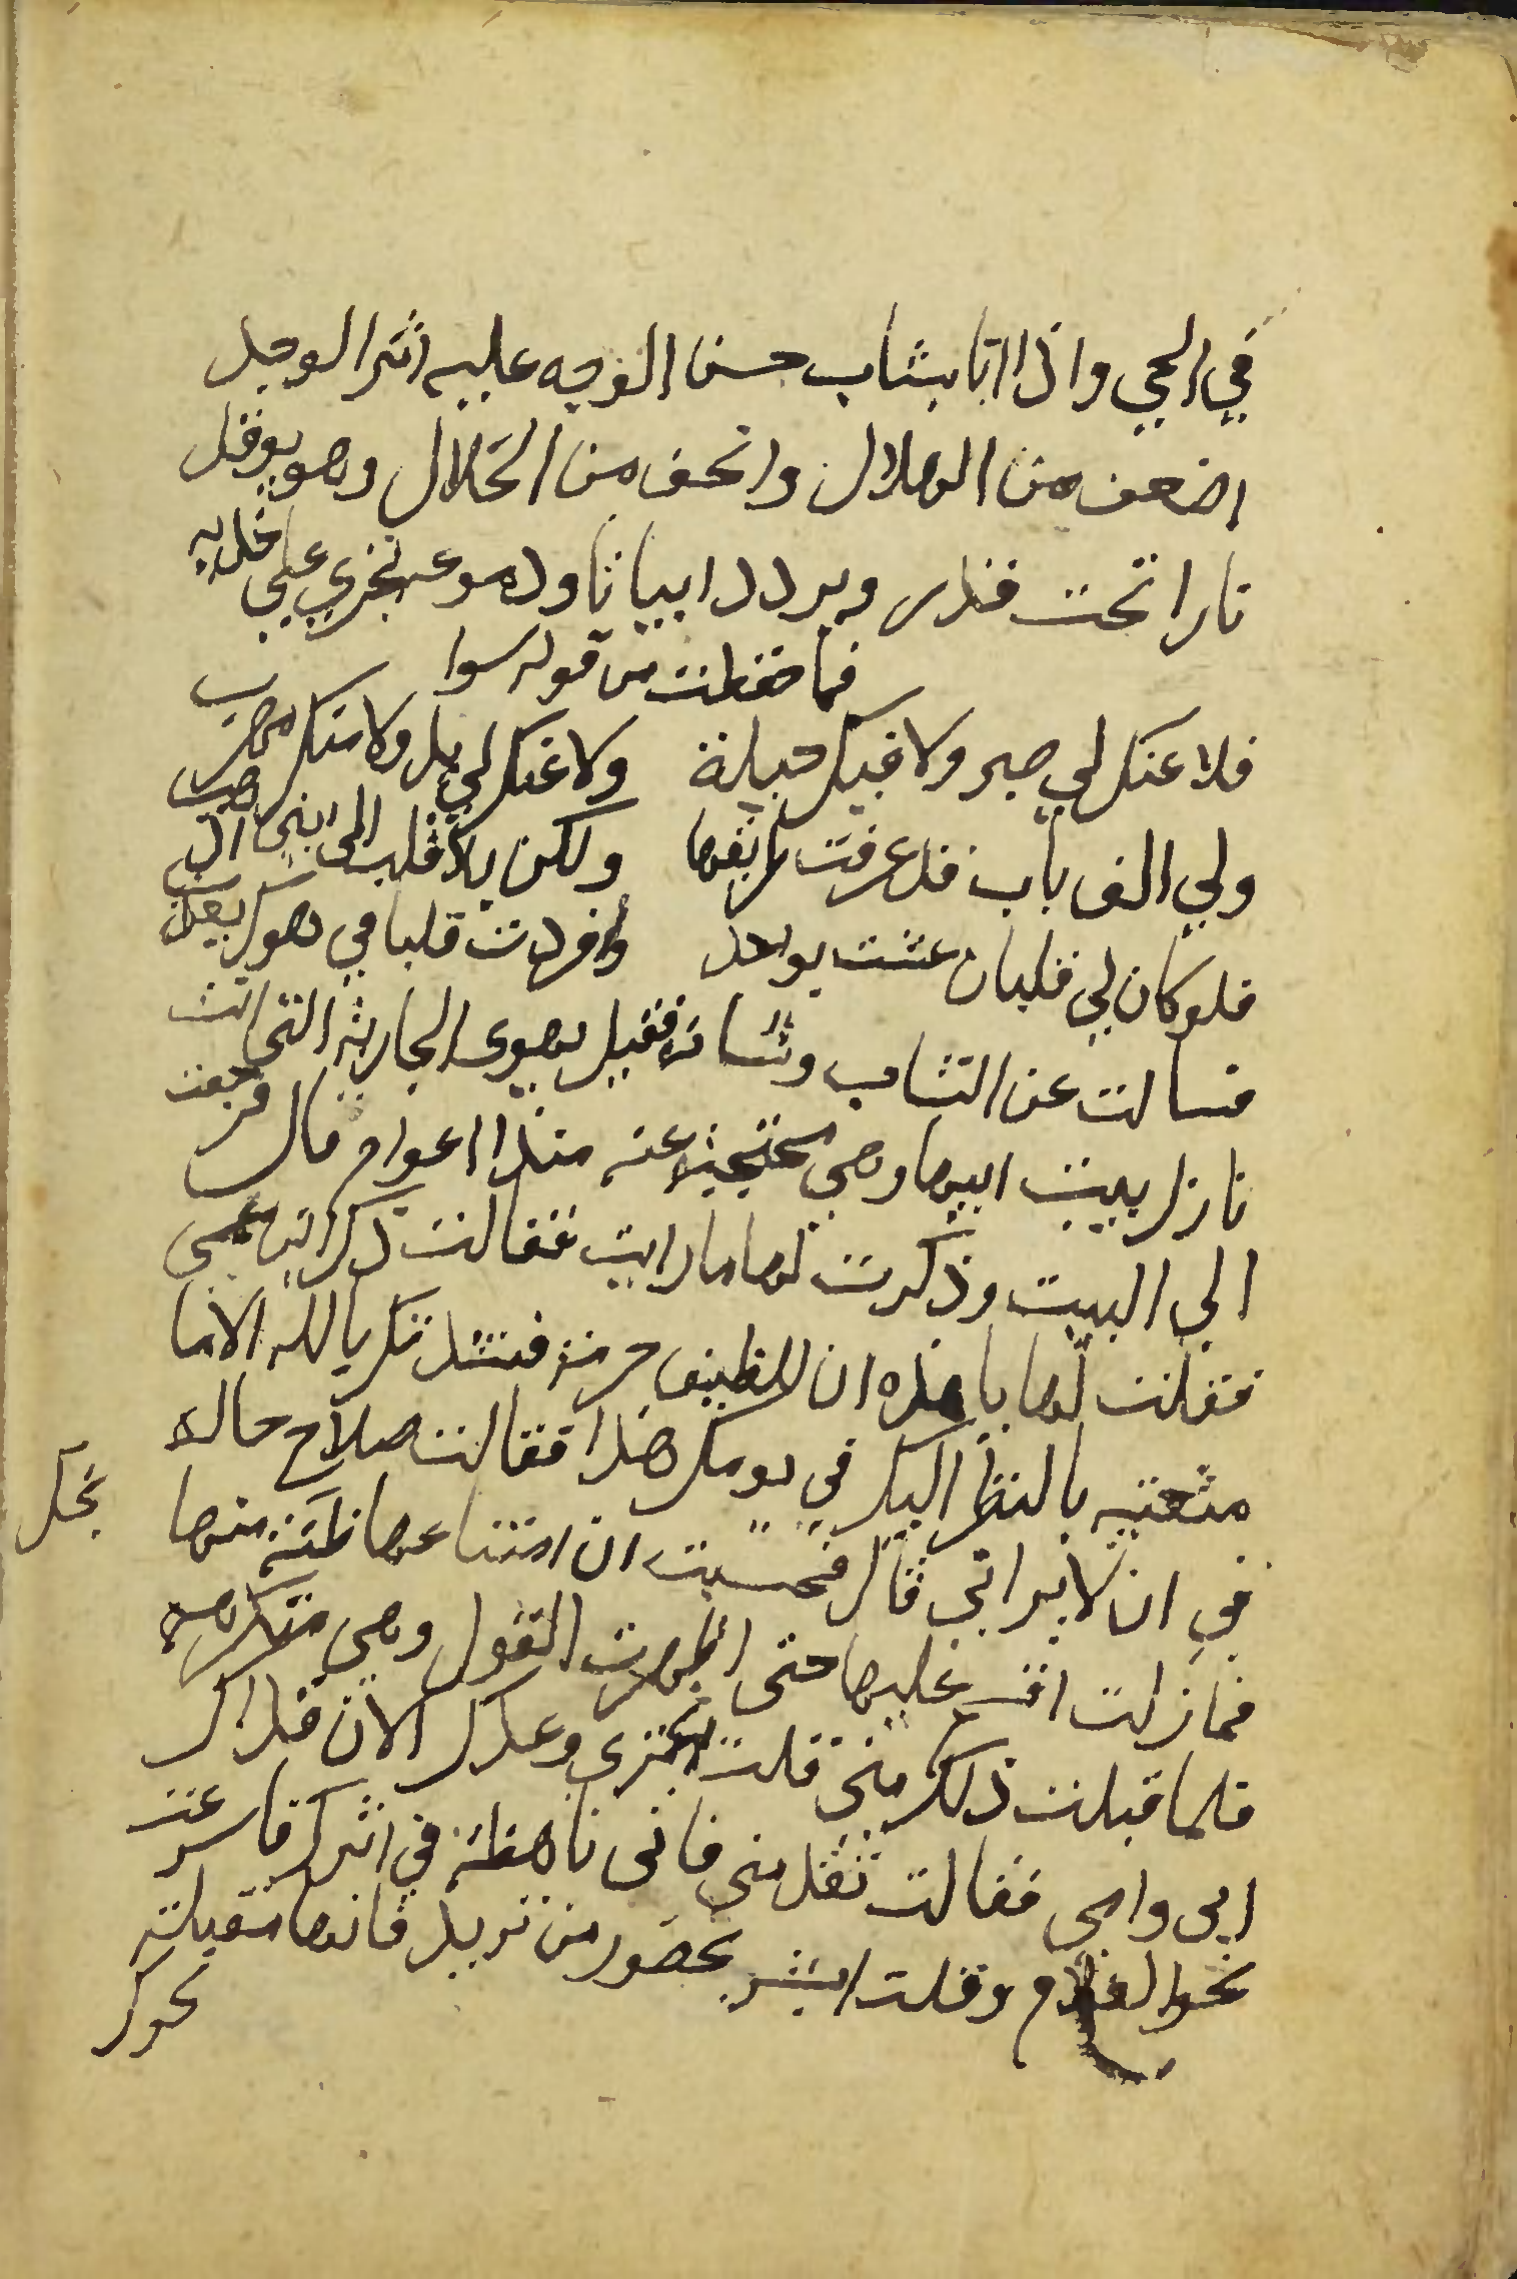 في الحي واذا انا بشاب حسن الوجه عليه اثر الوجل
اضعف من الهلال وانحف من الخلال وهو يوقد
نارا تحت قدر ويردد ابياتا ودموعه تجري علي خديه
فما حفظت من قوله سوا
فلا عنك لي صبر ولا فيك حيلة ولا عنك لي بد ولا منك مهرب
ولي الف باب قد عرفت طريقها ولكن بلا قلب الى اين اذهب
فلو كان لي قلبان عشت بواحد وافردت قلبا في هواك يعذب
فسالت عن الشاب وشانه فقيل يهوى الجارية التي انت
نازل ببيت ابيها وهي محتجبة عنه منذ اعوام قال فرجعت
الي البيت وذكرت لها ما رايت فقالت ذاك ابن عمي
فقلت لها يا هذه ان للضيف حرمة فنشدتك بالله الا ما
متعتيه بالنظر اليك في يومك هذا فقالت صلاح حاله
في ان لا يراني قال فحسبت ان امتناعها ظنة منها
فما زلت اقسم عليها حتى اظهرت القول وهي متكرهه
فلما قبلت ذلك مني قلت انجزي وعدك الان فداك
ابي وامي فقالت تقدمني فاني ناهظة في اثرك فاسرعت
نحو الغلام وقلت ابشر بحضور من تريد فانها مقبلة
نحوك